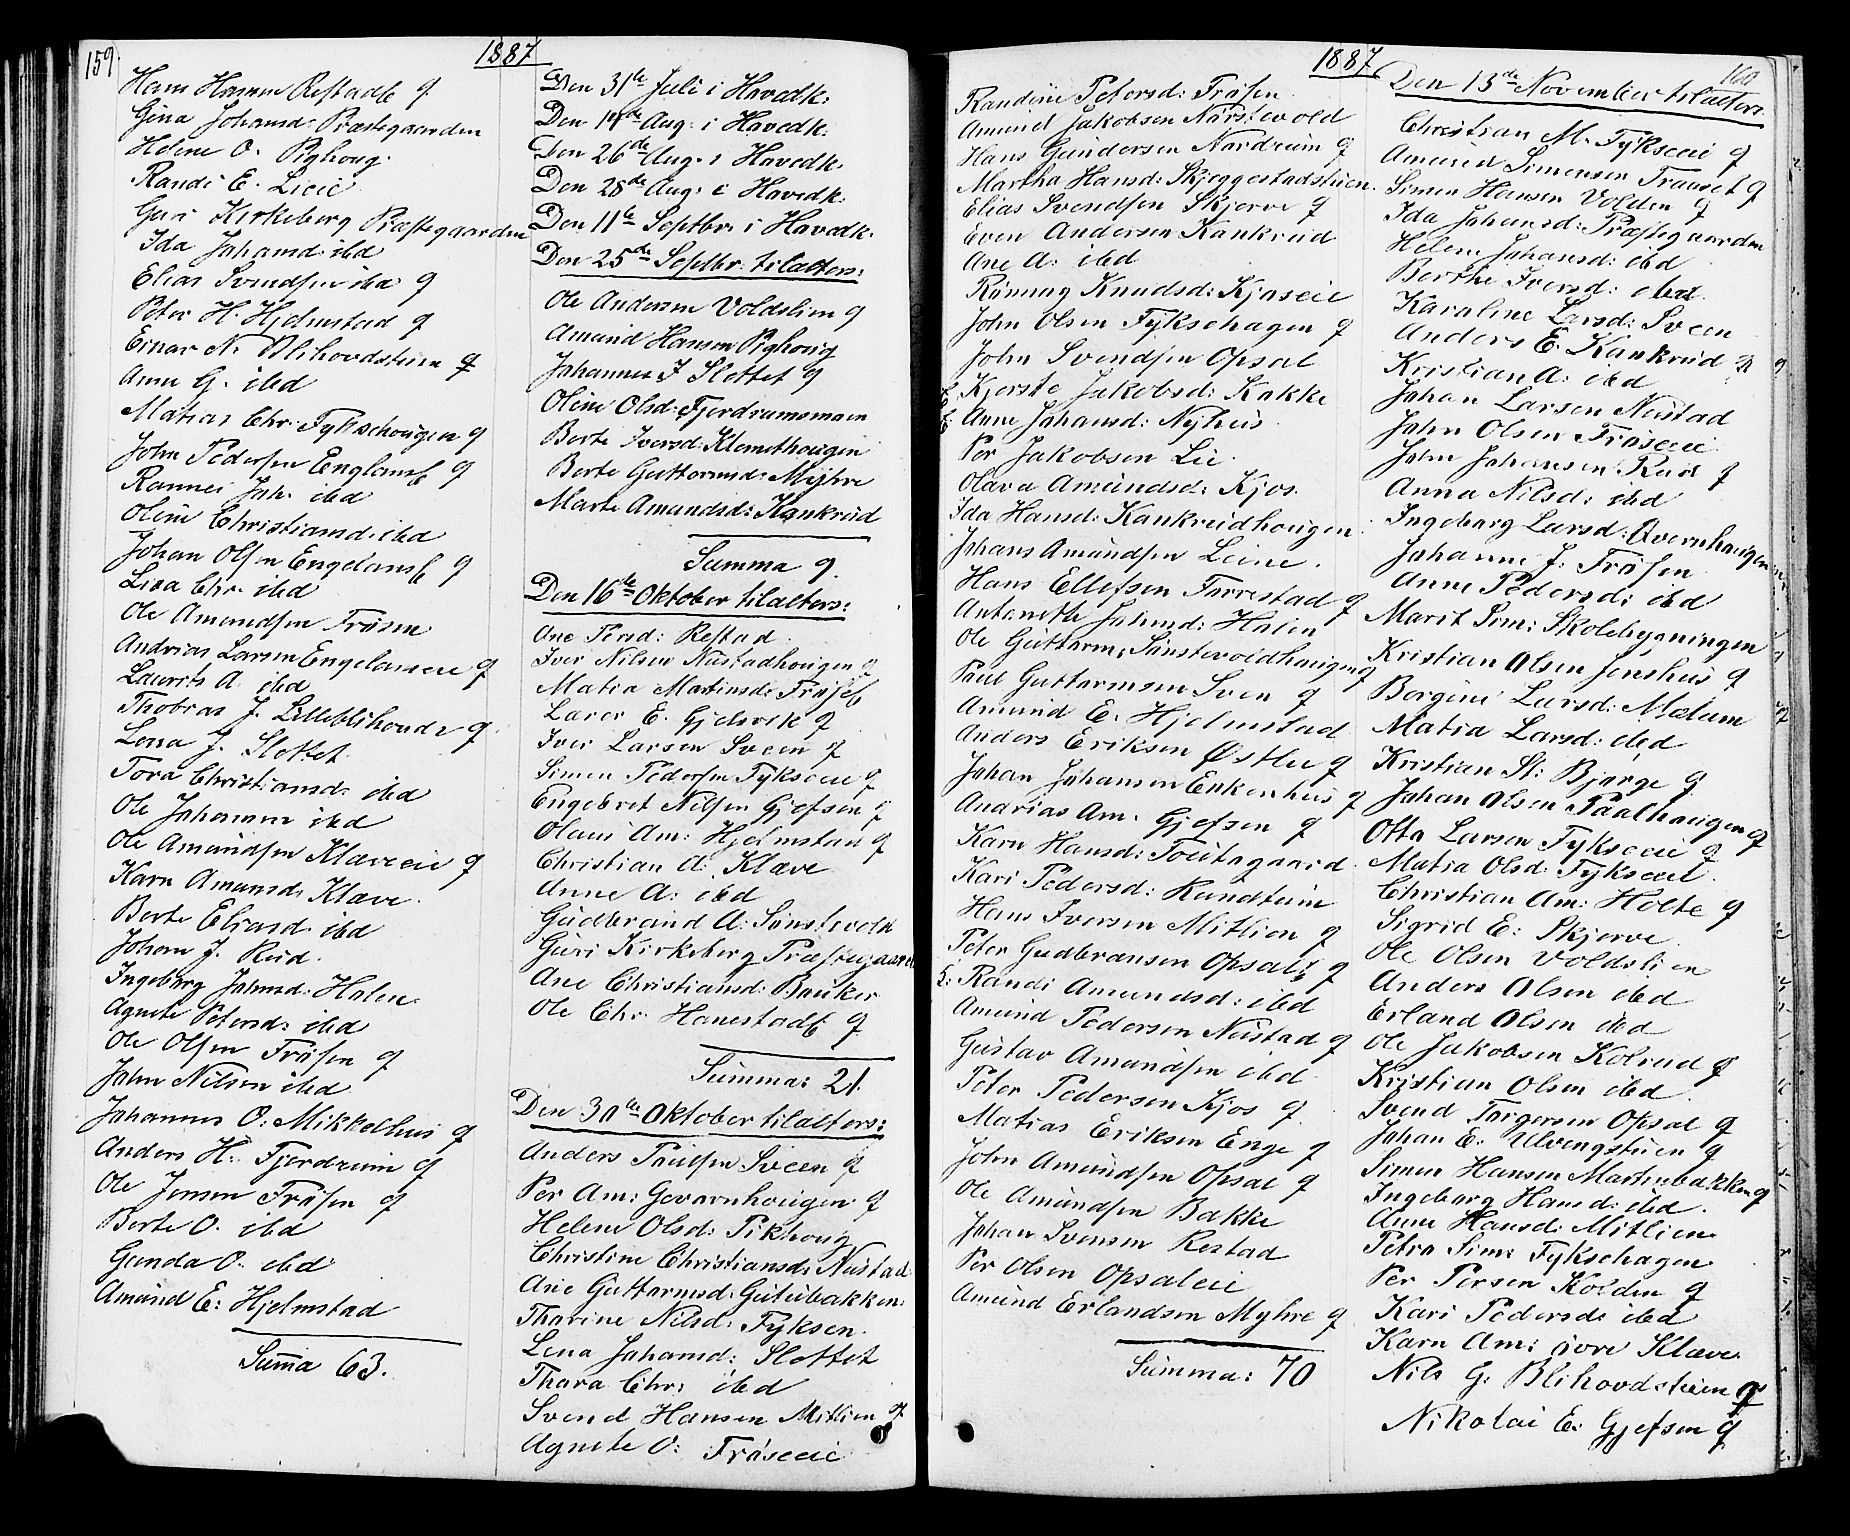 159.
1887
Hans Hansen RestadE g
Gina Johansd: Præstegaarden
Helene O. Pighoug.
Randi E. Lieie
Guri Kirkeberg Præstegaarden
Ida Johansd: ibd
Elias Svendsen ibd g
Peter H. Hjelmstad g
Einar N. Blihovdstuen g
Anne G. ibd
Matias Chr: Fykschougen g
John Pedersen g
Rannei Joh. ibd
Oline Christiansd. ibd
Johan Olsen g
Lisa Chr. ibd
Ole Amundsen Frøsen
Andrias Larsen g
Laurits A. ibd
Thobias J. g
Lena J. Slottet
Tora Christiansd. ibd
Ole Johansen ibd
Ole Amundsen Klæveeie g
Karn Amunsd. Klæve.
Berte Eliasd. ibd
Johan J. Rud.
Ingeborg Johnsd. Halen.
Agnete Petersd: ibd
Ole Olsen Frøsen g
John Nilsen ibd
Johannes O: Mikkelhus g
Anders H: Fjerdrum g
Ole Jensen Frøsen g
Berte O. ibd
Gunda O. ibd
Amund E: Hjelmstad
Summa 63.
Den 31te Juli i Havedk:
Den 14de Aug: i Havedk:
Den 26de Aug: i Havedk:
Den 28de Aug: i Havedk:
Den 11te Septbr: i Havedk:
Den 25de Septbr: tilalters:
Ole Andersen Voldslien g
Amund Hansen Pighoug
Johannes J Slottet g
Oline Olsd: Fjerdrumsmoen
Berte Iversd: Klemethougen
Berte Guttormsd: Myhre
Marte Amundsd: Kankrud
Summa 9.
Den 16de Oktober tilalters:
Ane Persd: Restad.
Iver Nilsen Nustadhougen g
Matia Martinsd:
Lars E. Gjelsvik g
Iver Larsen Sveen g
Simen Pedersen Fykseeie g
Engebret Nilsen Gjefsen g
Olaus Am: Hjelmstad g
Christian A: Klæve
Anne A: ibd
Gudbrand A: Sønstevold
Guri Kirkeberg Præstegaard
Ane Christiansd: Bauker
Ole Chr. HanestadE g
Summa: 21.
Den 30te Oktober tilalters:
Anders Paulsen Sveen g
Per Am: g
Helene Olsd: Pikhoug
Christine Christiansd: Nustad
Ane Guttormsd: Gutubakken:
Thorine Nilsd: Fyksen.
Lena Johansd: Slottet
Thora Chr: ibd
Svend Hansen Mitlien g
Agnete O: Frøseeie
1887
Randine Petersd: Frøsen
Amund Jakobsen Nørstevold
Hans Gundersen Nordrum g
Martha Hansd: Skjeggestadstuen.
Elias Svendsen Skjerve g
Even Andersen Kankrud
Ane A: ibd
Rønnaug Knudsd: Kjoseie
John Olsen Fykschagen g
John Svendsen Opsal
Kjerste Jakobsd: Kakke
Anne Johansd: Nyhus.
Per Jakobsen Lie.
Olava Amundsd: Kjos.
Ida Hansd: Kankrudhougen.
Johans Amundsen Leine.
Hans Ellefsen Torrestad g
Antonette Johnsd: Halen
Ole Guttorm: Sønstevoldhaugen g
Paul Guttormsen Sven g
Amund E: Hjelmstad
Anders Eriksen Østlie g
Johan Johansen Enkenhus g
Andrias Am. Gjefsen g
Karn Hansd:
Kari Pedersd: Rundtuin
Hans Iversen Mitlien g
Peter Gudbransen OpsalE g
Randi Amundsd: ibd
Amund Pedersen Nustad g
Gustav Amundsen ibd
Peter Pedersen Kjos g
Matias Eriksen Enge g
John Amundsen Opsal g
Ole Amundsen Bakke
Johan Svensen Restad
Per Olsen Opsaleie
Amund Erlandsen Myhre g
Summa: 70
160
Den 13de November tilalters.
Christian M. Fykseeie g
Amund Simensen Traaset g
Simen Hansen Volden g
Ida Johansd: Præstegaarden
Helene Johansd: ibd
Berthe Iversd: ibd.
Karoline Larsd: Sveen
Anders E. Kankrud
Kristian A: ibd
Johan Larsen Nustad
John Olsen Frøseeie
John Johansen Rud g
Anna Nilsd: ibd
Ingeborg Larsd: Qvernhaugen
Johanne J. Frøsen
Anne Pedersd: ibd
Marit Sim: Skolebygningen
Kristian Olsen Jenshus g
Borgine Larsd: Mælum
Matia Larsd: ibd
Kristian St: Bjørge g
Johan Olsen Paalhaugen g
Otto Larsen Fykseeie g
Matia Olsd: Fykseeie.
Christian Am: Holte g
Sigrid E: Skjerve.
Ole Olsen Voldslien
Anders Olsen ibd
Erland Olsen ibd
Ole Jakobsen Kolrud g
Kristian Olsen ibd.
Svend Torgersen Opsal g
Johan E: Ulvengstuen g
Simen Hansen Martinbakken g
Ingeborg Hansd: ibd.
Anne Hansd: Mitlien.
Petra Sim: Fykschagen
Per Persen Kolden g
Kari Pedersd: ibd
Karn Am: øvre Klæve.
Nils G: Blihovdstuen g
Nikolai E: Gjefsen g